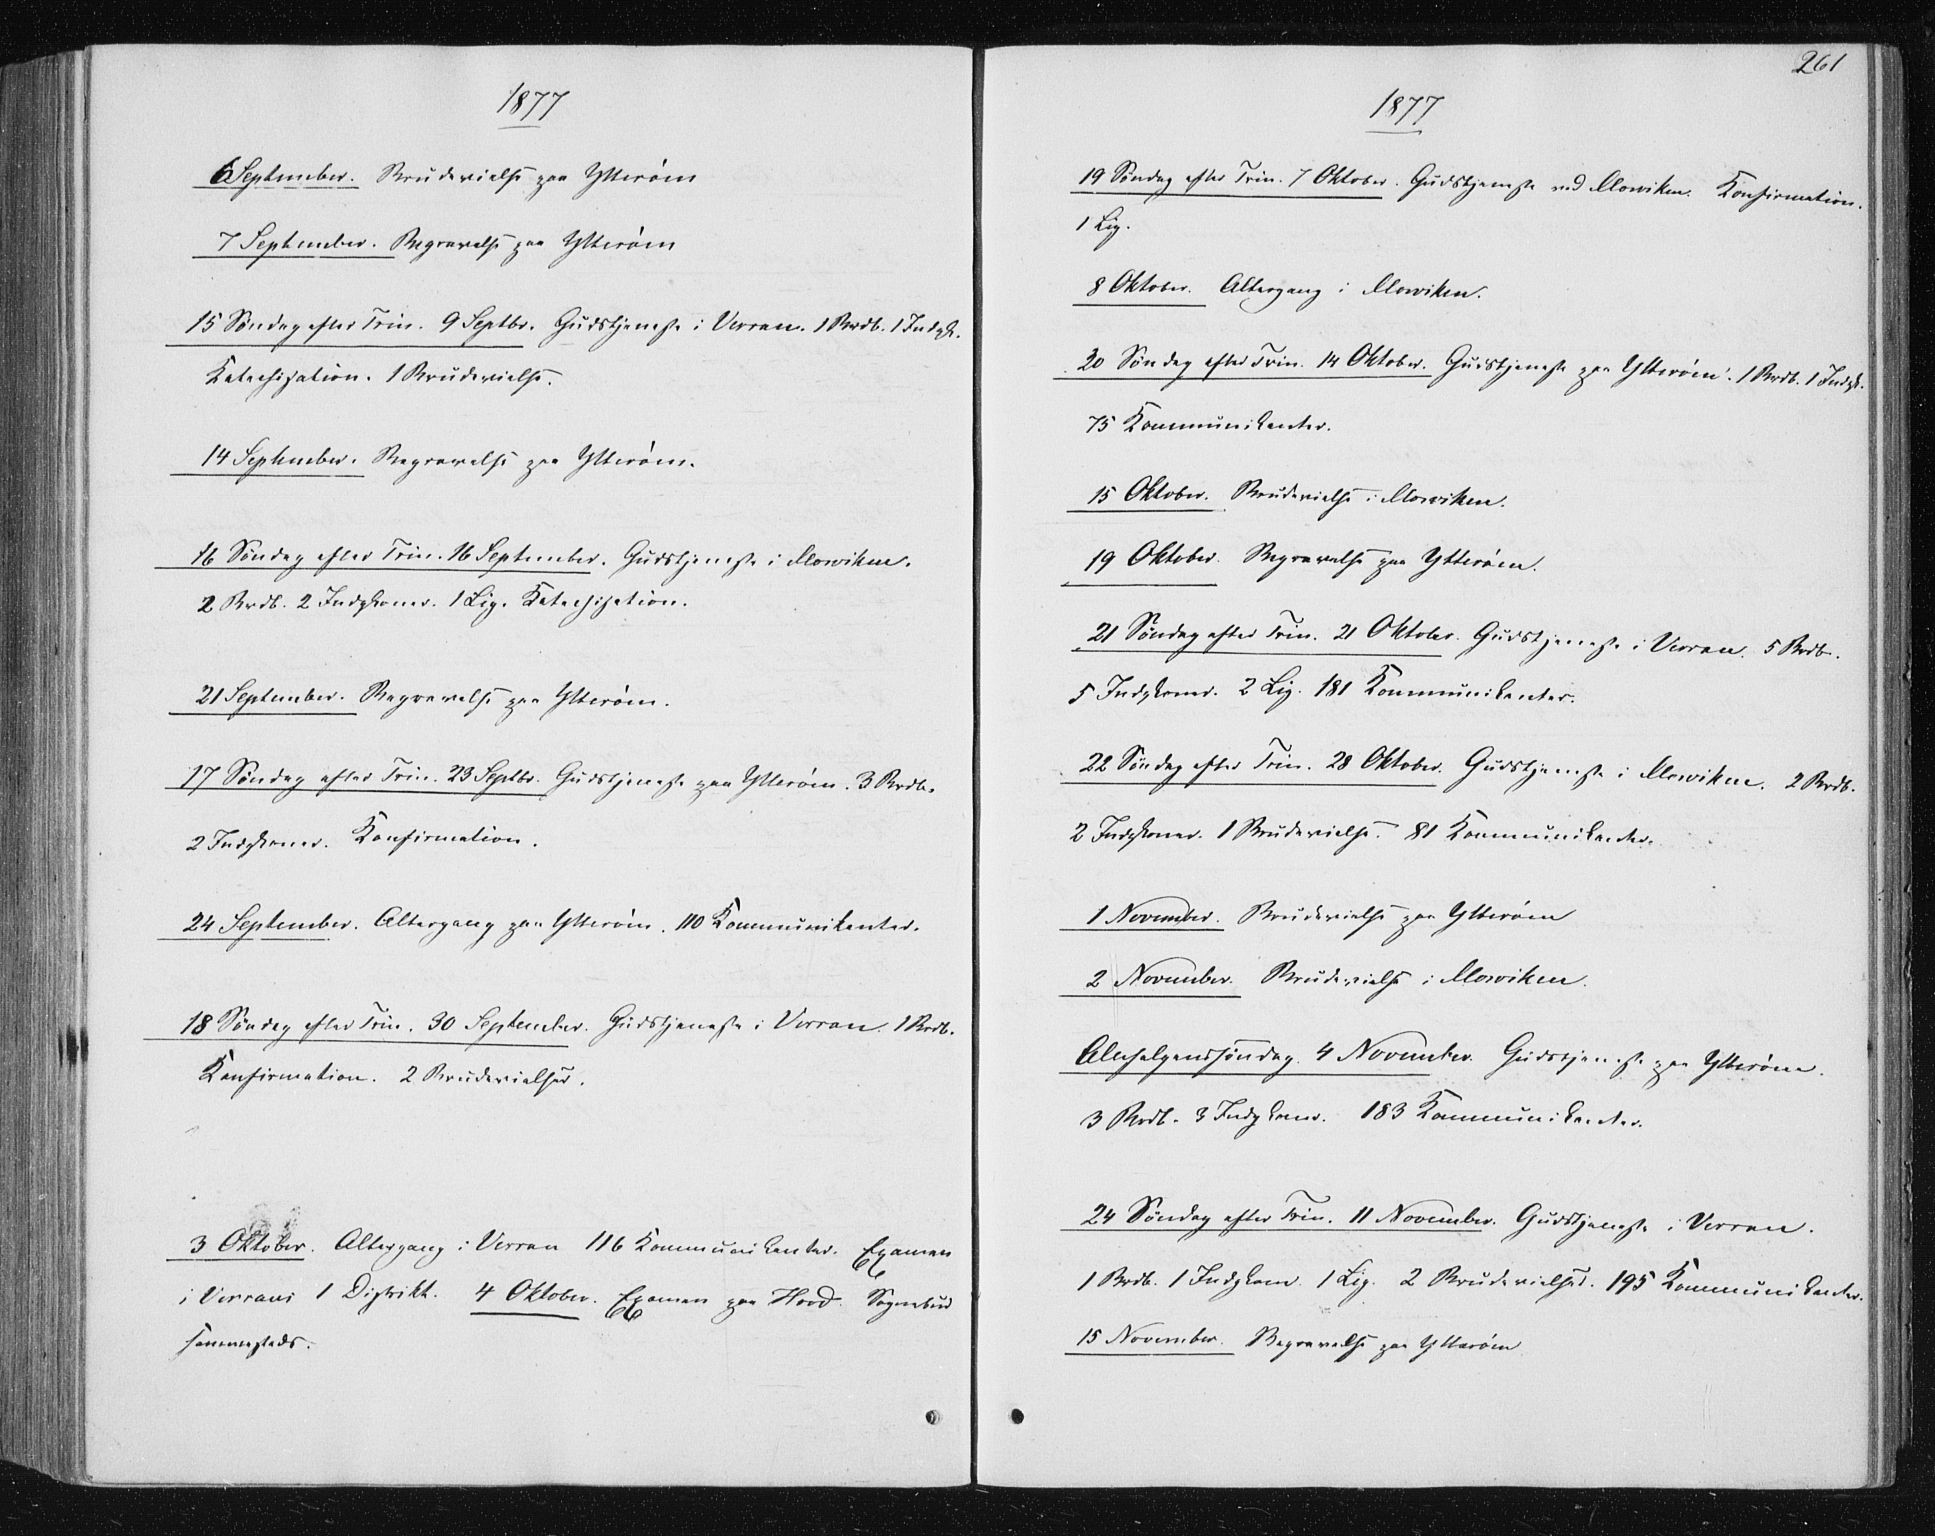 1877
6 September. Brudevielse paa Ytterøen
7 September. Begravelse paa Ytterøen
15 Søndag efter Trin. 9 Septbr. Gudstjeneste i Verran. 1 Brdb. 1 Indgk.
Katechisation. 1 Brudevielse.
14 September. Begravelse paa Ytterøen.
16 Søndag efter Trin. 16 September. Gudstjeneste i Mosviken.
2 Brdb. 2 Indgkoner. 1 Lig. Katechisation.
21 September. Begravelse paa Ytterøen.
17 Søndag efter Trin. 23 Septbr. Gudstjeneste paa Ytterøen. 3 Brdb.
2 Indgkoner. Konfirmation.
24 September. Altergang paa Ytterøen. 110 Kommunikanter.
18 Søndag efter Trin. 30 September. Gudstjeneste i Verran. 1 Brdb.
Konfirmation. 2 Brudevielser.
3 Oktober. Altergang i Verran 116 Kommunikanter. Examen
i Verrans 1 Distrikt. 4 Oktober. Examen paa Hovd. Sognebud
sammesteds.
261
1877
19 Søndag efter Trin. 7 Oktober. Gudstjeneste ved Mosviken. Konfirmation.
1 Lig.
8 Oktober. Altergang i Mosviken.
20 Søndag efter Trin. 14 Oktober. Gudstjeneste paa Ytterøen. 1 Brdb. 1 Indgk.
75 Kommunikanter.
15 Oktober. Brudevielse i Mosviken.
19 Oktober. Begravelse paa Ytterøen.
21 Søndag efter Trin. 21 Oktober. Gudstjeneste i Verran. 5 Brdb.
5 Indgkoner. 2 Lig. 181 Kommunikanter.
22 Søndag efter Trin. 28 Oktober. Gudstjeneste i Mosviken. 2 Brdb.
2 Indgkoner. 1 Brudevielse. 81 Kommunikanter.
1 November. Brudevielse paa Ytterøen
2 November. Brudevielse i Mosviken.
Alehelgenssøndag. 4 November. Gudstjeneste paa Ytterøen.
3 Brdb. 3 Indgkoner. 183 Kommunikanter.
24 Søndag efter Trin. 11 November. Gudstjeneste i Verran.
1 Brdb. 1 Indgkone. 1 Lig. 2 Brudevielser. 195 Kommunikanter.
15 November. Begravelse paa Ytterøen